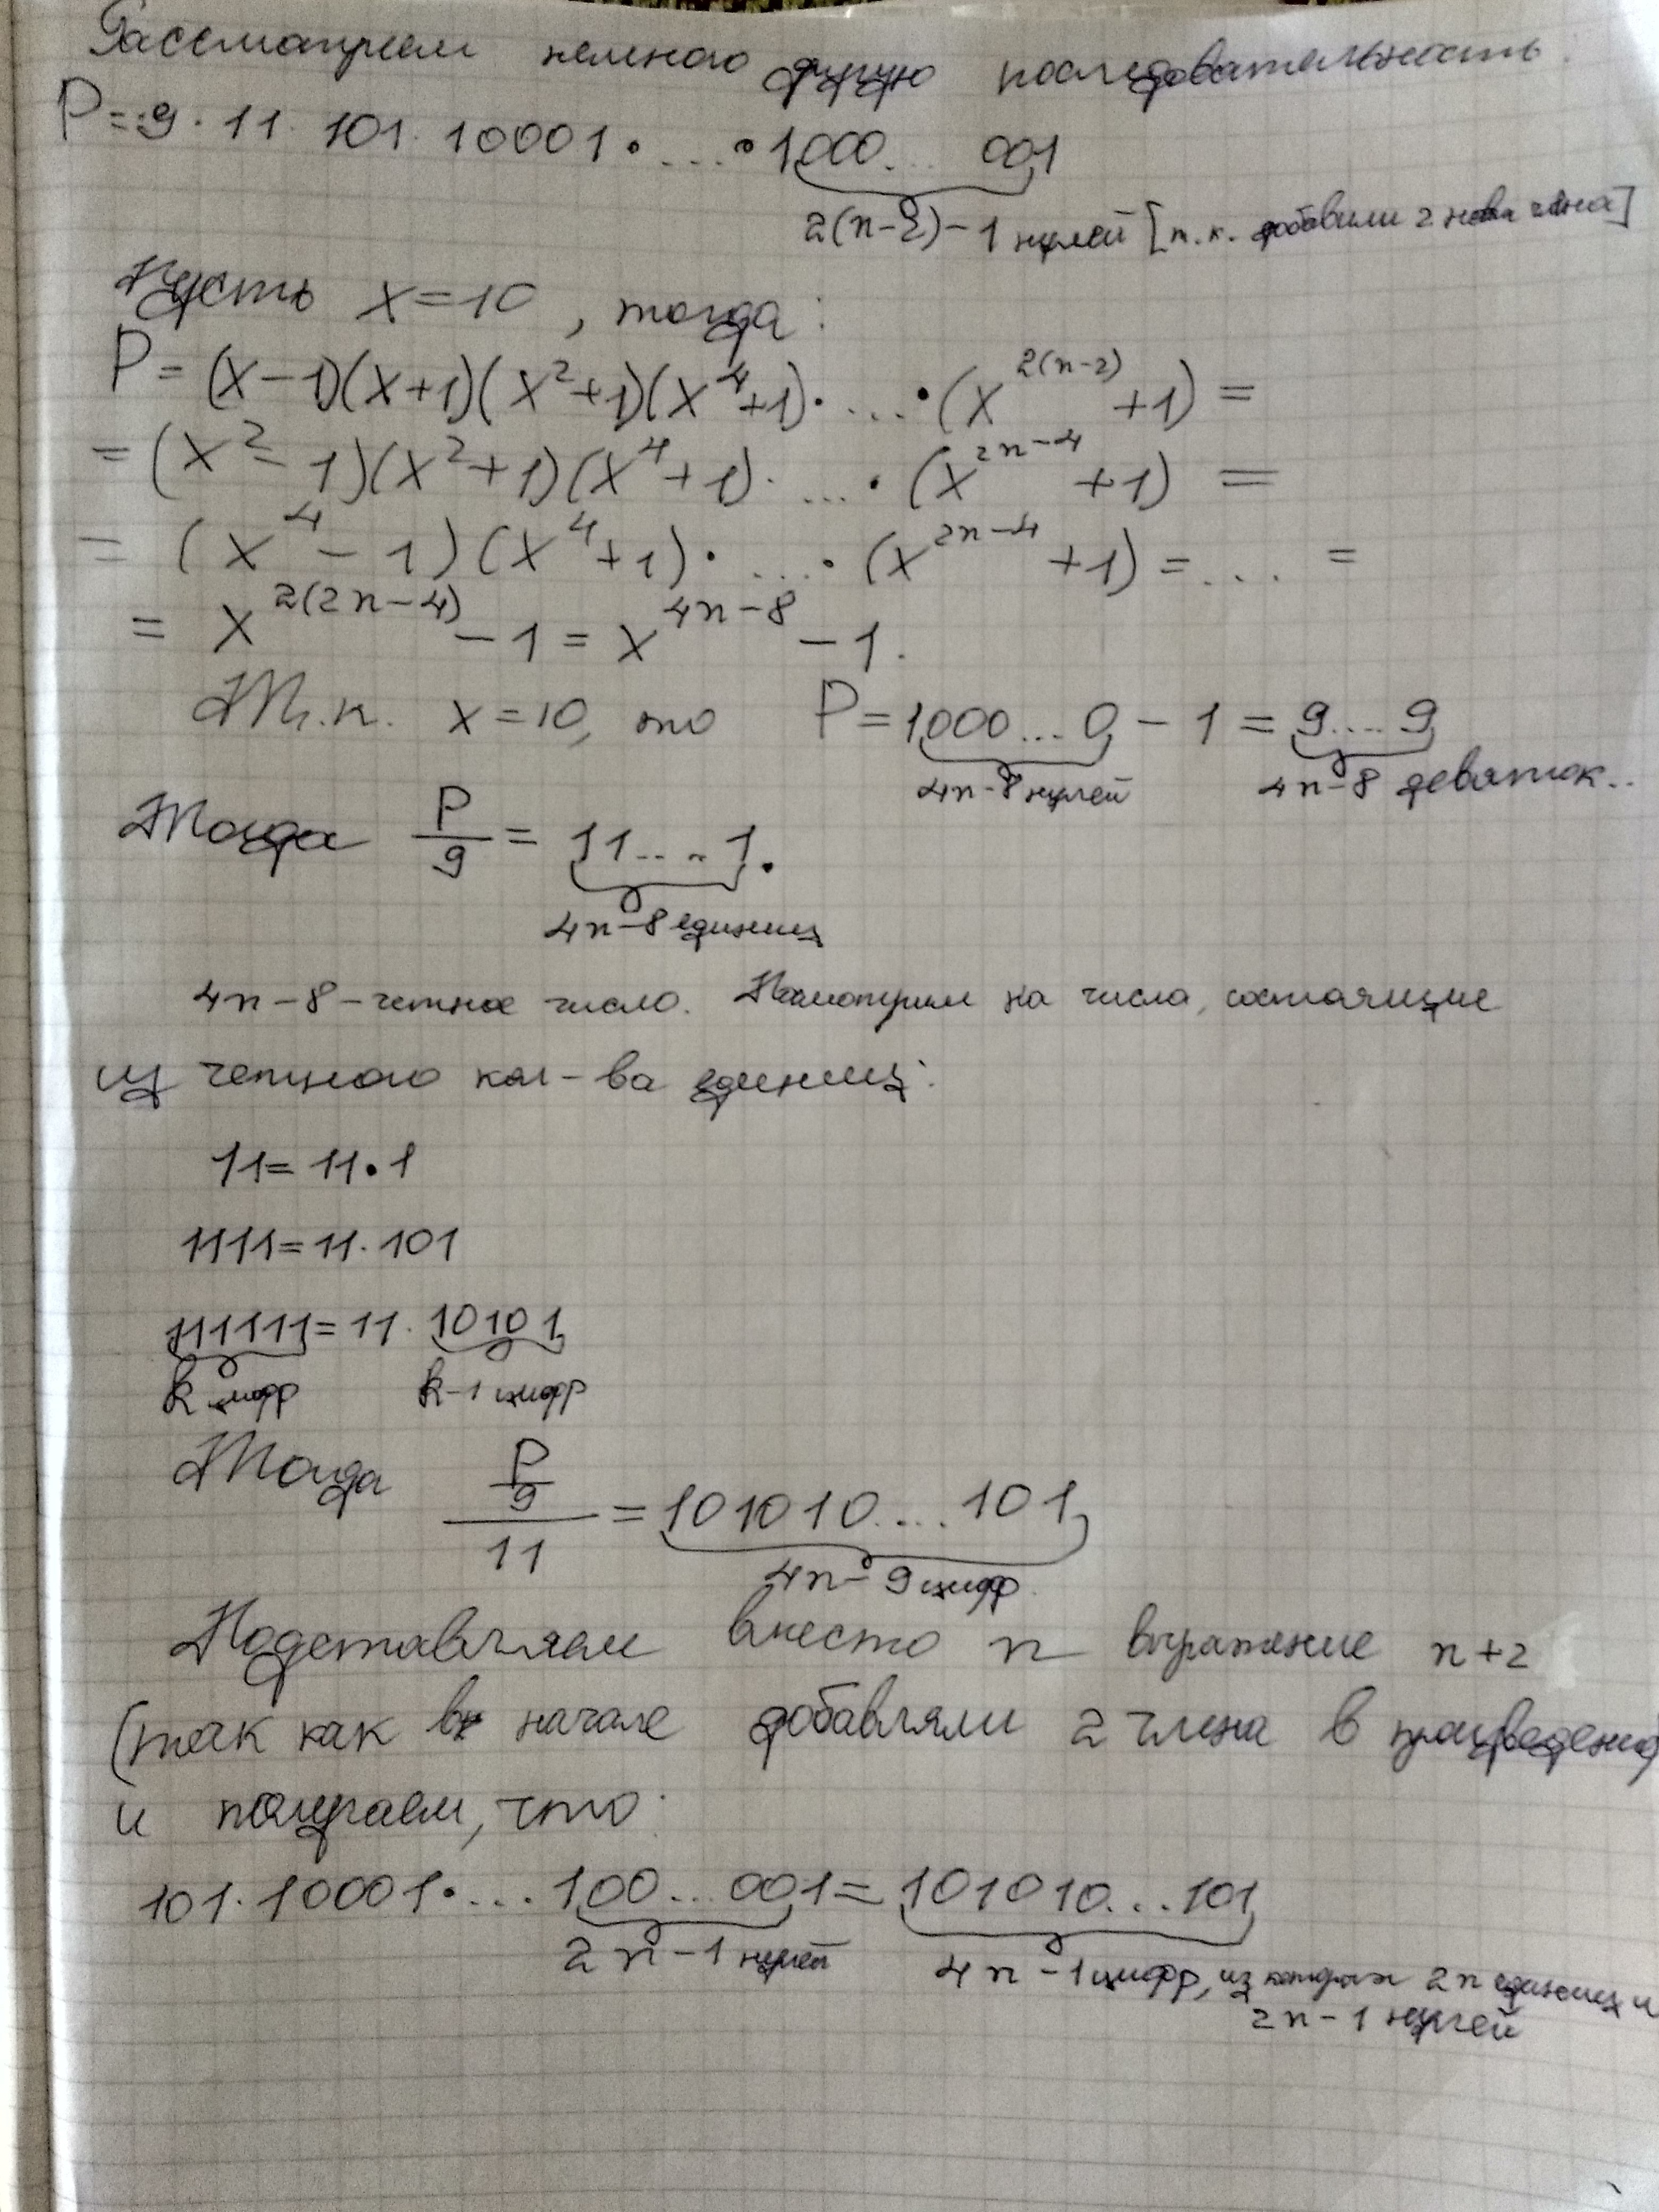 Рассмотрим немного другую последовательность.
P = 9 · 11 · 101 · 10001 · ... · 1000... 001
2(n-2)-1 нулей [т.к. добавили 2 новых члена]
Пусть x=10, тогда:
P = (x-1)(x+1)(x²+1)(x⁴+1)· ... ·(x^{2(n-2)}+1) =
= (x²-1)(x²+1)(x⁴+1)· ... ·(x^{2n-4}+1) =
= (x⁴-1)(x⁴+1)· ... ·(x^{2n-4}+1) = ... =
= x^{2(2n-4)} - 1 = x^{4n-8} - 1.
Т.к. x=10, то P = 1000...0 - 1 = 9....9
4n-8 нулей 4n-8 девяток..
Тогда P/9 = 11....1.
4n-8 единиц
4n-8 - четное число. Посмотрим на числа, состоящие
из четного кол-ва единиц:
11 = 11·1
1111 = 11·101
111111 = 11·10101
k цифр k-1 цифр
Тогда (P/9)/11 = 101010....101
4n-9 цифр.
Подставляем вместо n выражение n+2
(так как в начале добавляли 2 члена в произведение)
и получаем, что:
101·10001·...·100...001 = 101010...101
2n-1 нулей 4n-1 цифр, из которых 2n единиц и
2n-1 нулей